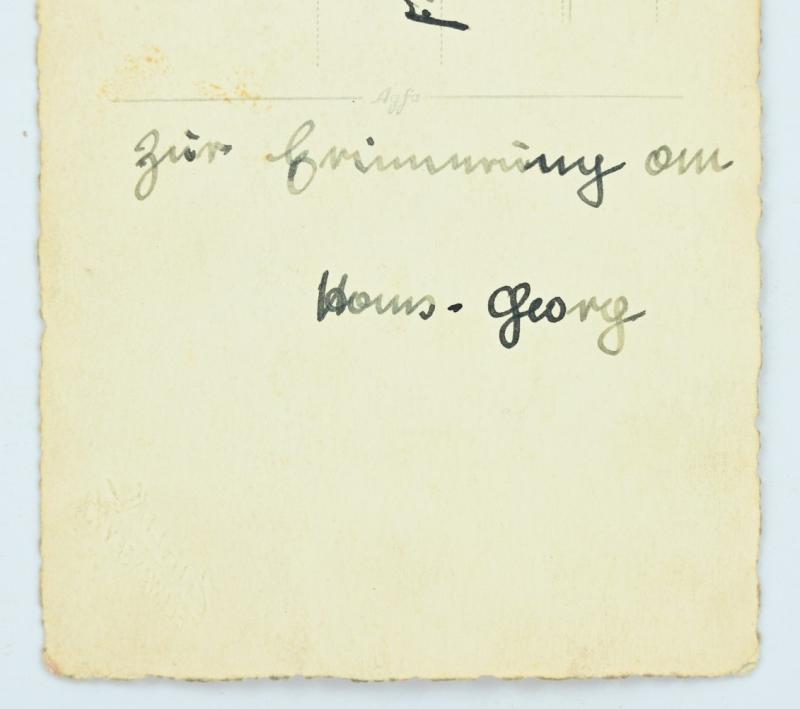 Agfa
Zur Erinnerung an
Hans-Georg